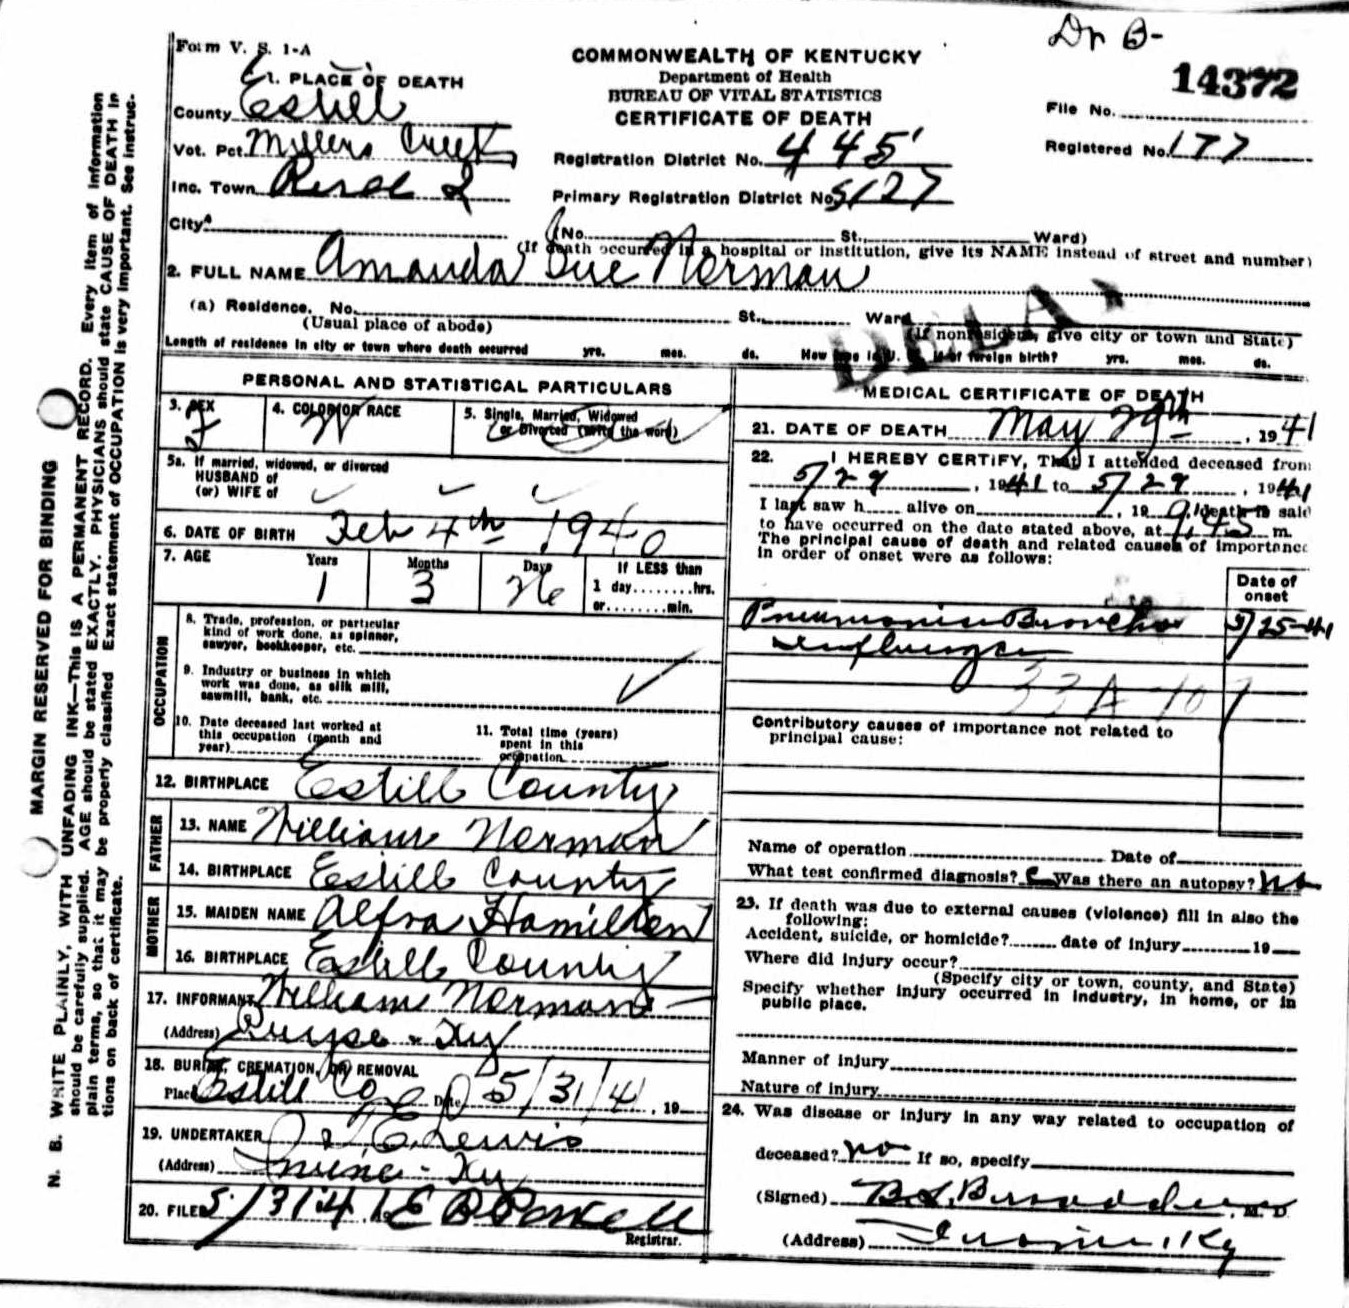 Dr B-
Form V. S. 1-A
COMMONWEALTH OF KENTUCKY
Department of Health
BUREAU OF VITAL STATISTICS
CERTIFICATE OF DEATH
14372
File No.
Registered No. 177
1. PLACE OF DEATH
County Estill
Vot. Pct. Millers Creek
Inc. Town Rural
Registration District No. 445
Primary Registration District No. 5127
City
(No. St., Ward)
(If death occurred in a hospital or institution, give its NAME instead of street and number)
2. FULL NAME Amanda Sue Norman
(a) Residence, No. St., Ward
(Usual place of abode) (If nonresident, give city or town and State)
DELAY
Length of residence in city or town where death occurred yrs. mos. ds. How long in U. S. if of foreign birth? yrs. mos. ds.
PERSONAL AND STATISTICAL PARTICULARS
3. SEX F
4. COLOR OR RACE W
5. Single, Married, Widowed
or Divorced (write the word)
5a. If married, widowed, or divorced
HUSBAND of
(or) WIFE of
6. DATE OF BIRTH Feb 4th 1940
7. AGE Years Months Days If LESS than
1 3 26 1 day........hrs.
or........min.
OCCUPATION
8. Trade, profession, or particular
kind of work done, as spinner,
sawyer, bookkeeper, etc.
9. Industry or business in which
work was done, as silk mill,
sawmill, bank, etc.
10. Date deceased last worked at
this occupation (month and
year)
11. Total time (years)
spent in this
occupation
12. BIRTHPLACE Estill County
FATHER
13. NAME William Norman
14. BIRTHPLACE Estill County
MOTHER
15. MAIDEN NAME Alfra Hamilton
16. BIRTHPLACE Estill County
17. INFORMANT William Norman
(Address) Ky
18. BURIAL, CREMATION, OR REMOVAL
Place Estill Co Date 5/31/41, 19
19. UNDERTAKER E. Lewis
(Address) Irvine - Ky
20. FILED 5/31 41 E B Powell
Registrar.
MEDICAL CERTIFICATE OF DEATH
21. DATE OF DEATH May 29th, 1941
22. I HEREBY CERTIFY, That I attended deceased from
5/29, 1941 to 5/29, 1941
I last saw h..... alive on, 19 death is said
to have occurred on the date stated above, at 9:45 m.
The principal cause of death and related causes of importance
in order of onset were as follows:
Date of
onset
Pneumonia Broncho 5/25-41
Influenza
33A 107
Contributory causes of importance not related to
principal cause:
Name of operation Date of
What test confirmed diagnosis? C Was there an autopsy? No
23. If death was due to external causes (violence) fill in also the
following:
Accident, suicide, or homicide? date of injury 19
Where did injury occur?
(Specify city or town, county, and State)
Specify whether injury occurred in industry, in home, or in
public place.
Manner of injury
Nature of injury
24. Was disease or injury in any way related to occupation of
deceased? no If so, specify
(Signed) , M. D.
(Address) Irvine, Ky
MARGIN RESERVED FOR BINDING
N. B. WRITE PLAINLY, WITH UNFADING INK—THIS IS A PERMANENT RECORD. Every item of information
should be carefully supplied. AGE should be stated EXACTLY. PHYSICIANS should state CAUSE OF DEATH in
plain terms, so that it may be properly classified. Exact statement of OCCUPATION is very important. See instruc-
tions on back of certificate.